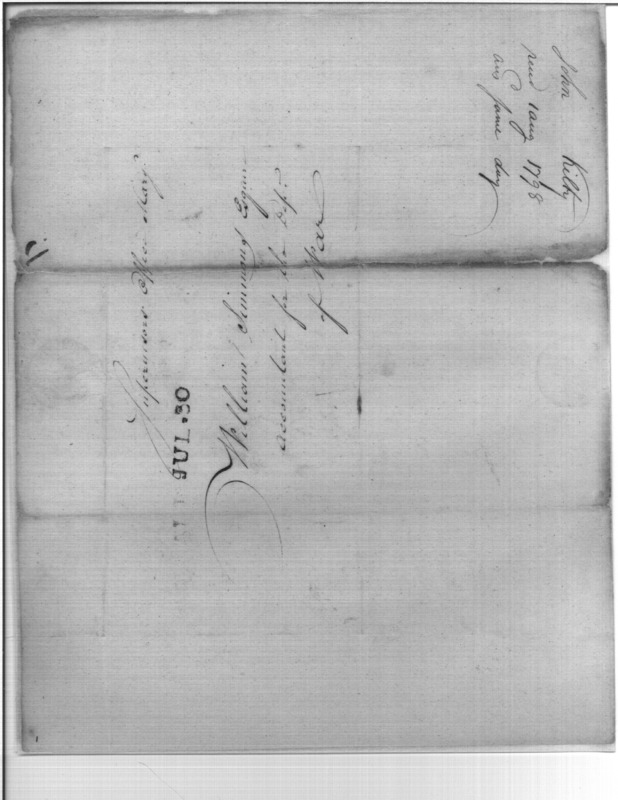 John Kilty
recd 1 aug 1798
ans same day
Supervisors Office Mary
JUL. 30
William Simmons Esquire
Accountant for the Dept.
of War